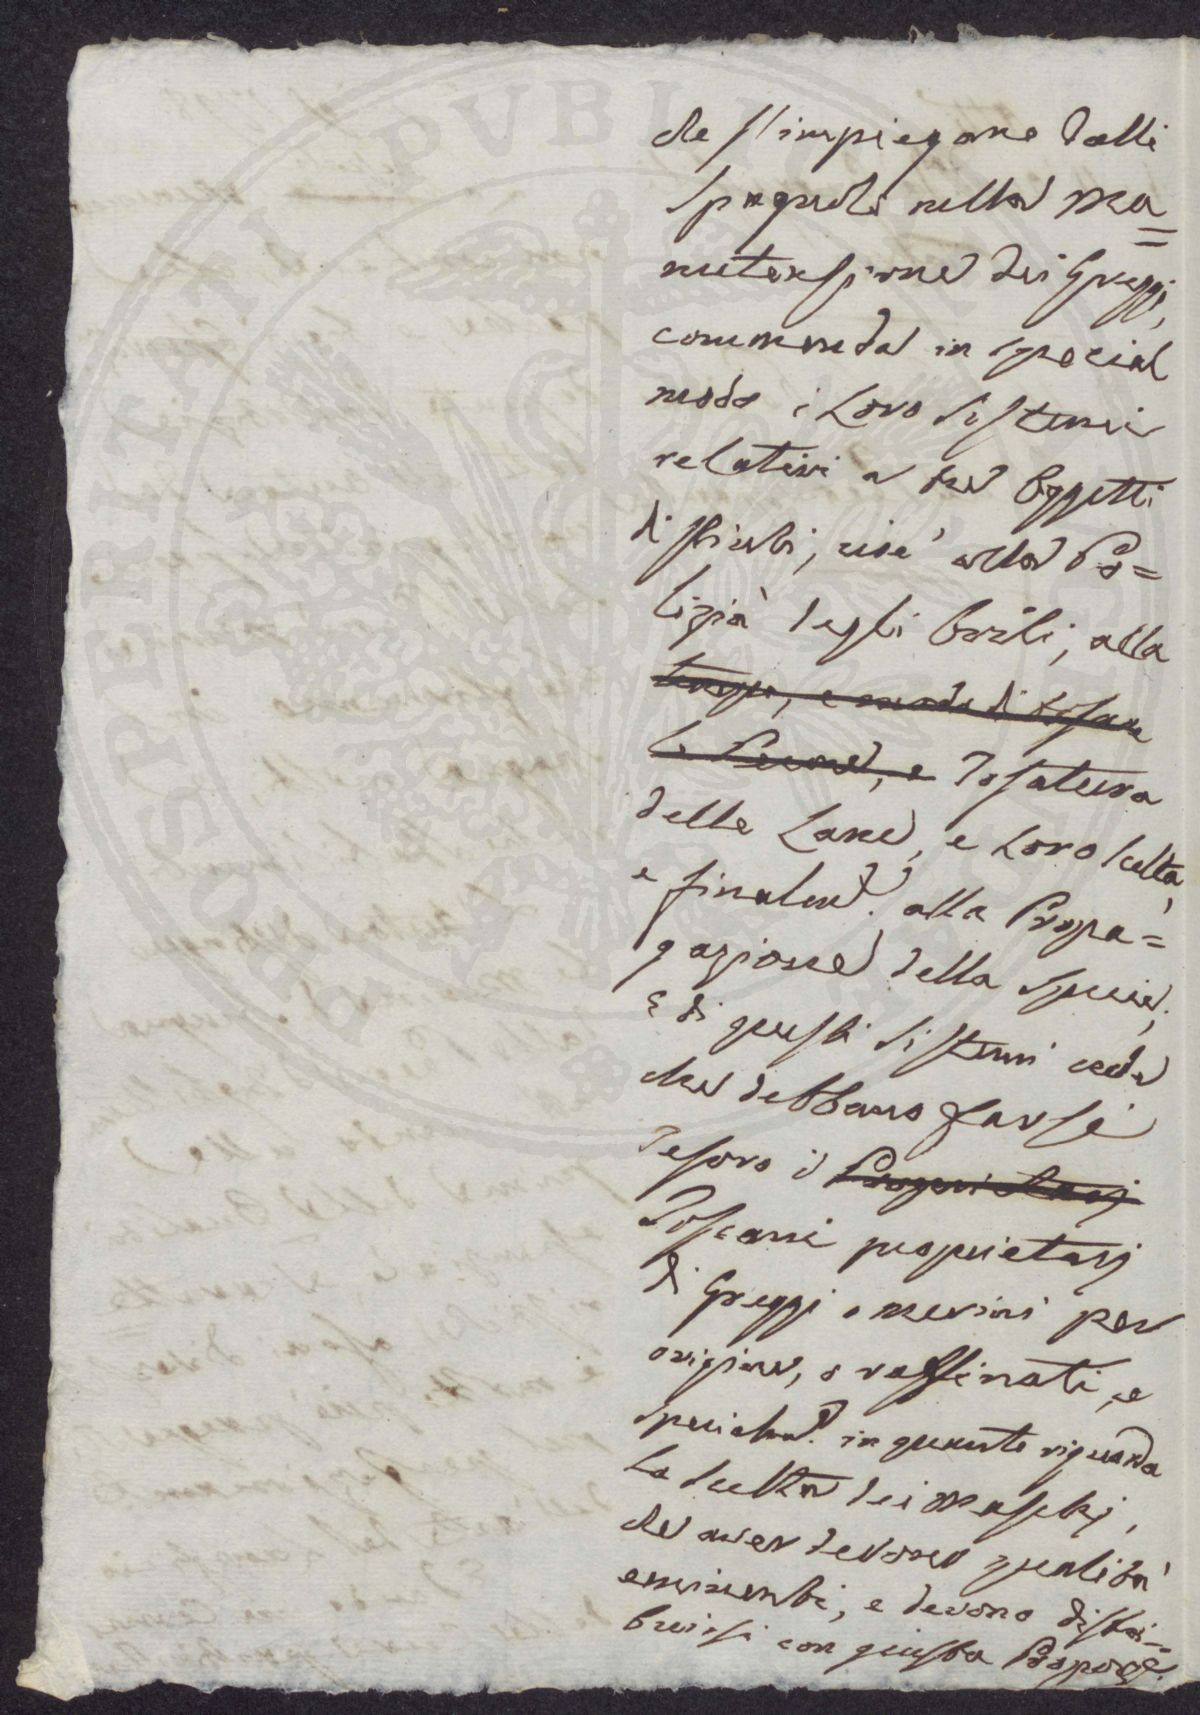 che s'impiegano dalli
Spagnoli nella Ma=
nutensione dei Greggi,
commenda in special
modo i Loro Sistemi
relativi a tre Oggetti
distinti, cioè alla Po=
lizia degli Ovili, alla
tempo, e modo di tosare
le Pecore, e Tosatura
delle Lane, e Loro scelta,
e finalm.e alla Propa=
gazione della Specie;
E di questi Sistemi crede
che debbano farsi
Tesoro i Proprietarj
Toscani proprietarj
di Greggi o merini per
origine, o raffinati, e
specialm.e in quanto riguarda
La Scelta dei Maschj,
che aver devono qualità
eminenti, e devono distri=
buirsi con giusta Proporz.e
PVBLICAE
PROSPERITATI